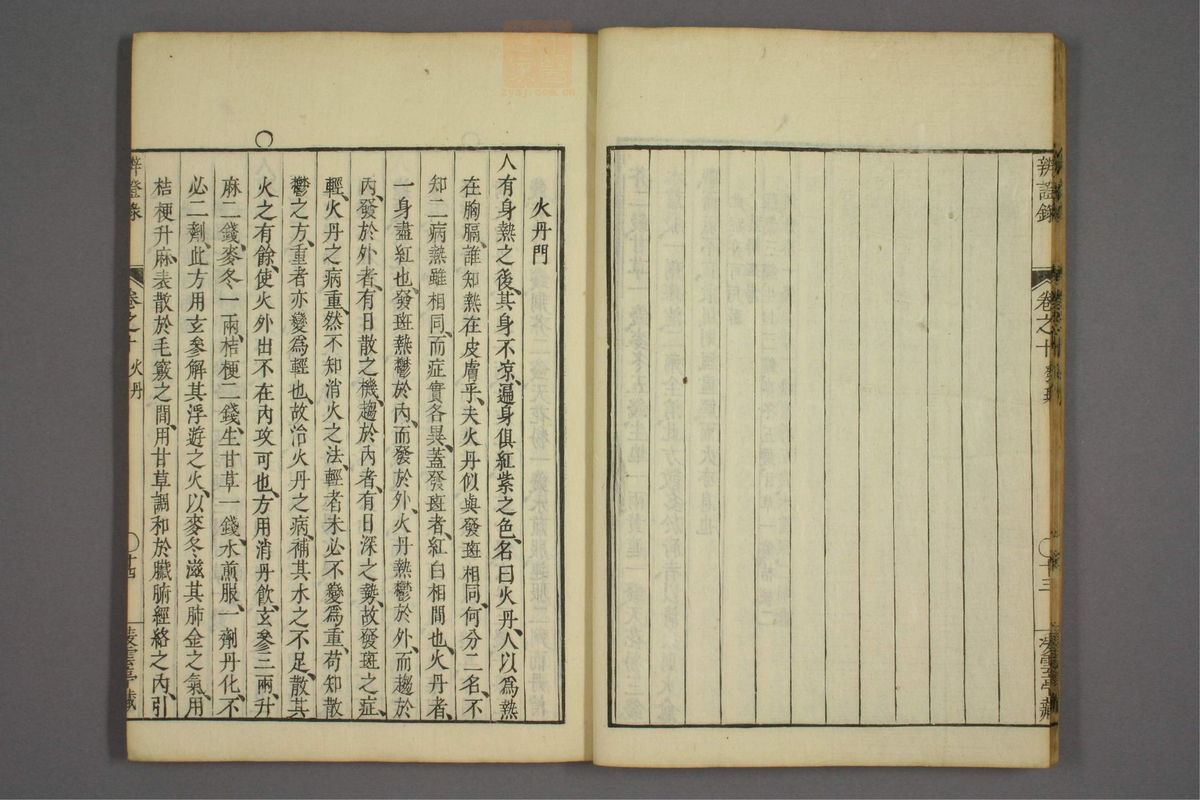 辨證錄
卷之十
十三
凌雲亭藏
火丹門
人有身熱之後其身不凉遍身俱紅紫之色名曰火丹人以爲熱
在胸膈誰知熱在皮膚乎夫火丹似與發斑相同何分二名不
知二病熱雖相同而症實各異蓋發斑者紅白相間也火丹者
一身盡紅也發斑熱鬱於內而發於外火丹熱鬱於外而趨於
內發於外者有日散之機趨於內者有日深之勢故發斑之症
輕火丹之病重然不知消火之法輕者未必不變爲重苟知散
鬱之方重者亦變爲輕也故治火丹之病補其水之不足散其
火之有餘使火外出不在內攻可也方用消丹飲玄參三兩升
○
麻二錢麥冬一兩桔梗二錢生甘草一錢水煎服一劑丹化不
必二劑此方用玄參解其浮遊之火以麥冬滋其肺金之氣用
桔梗升麻表散於毛竅之間用甘草調和於臟腑經絡之內引
辨證錄
卷之十 火丹
十四
凌雲亭藏
zysj.com.cn